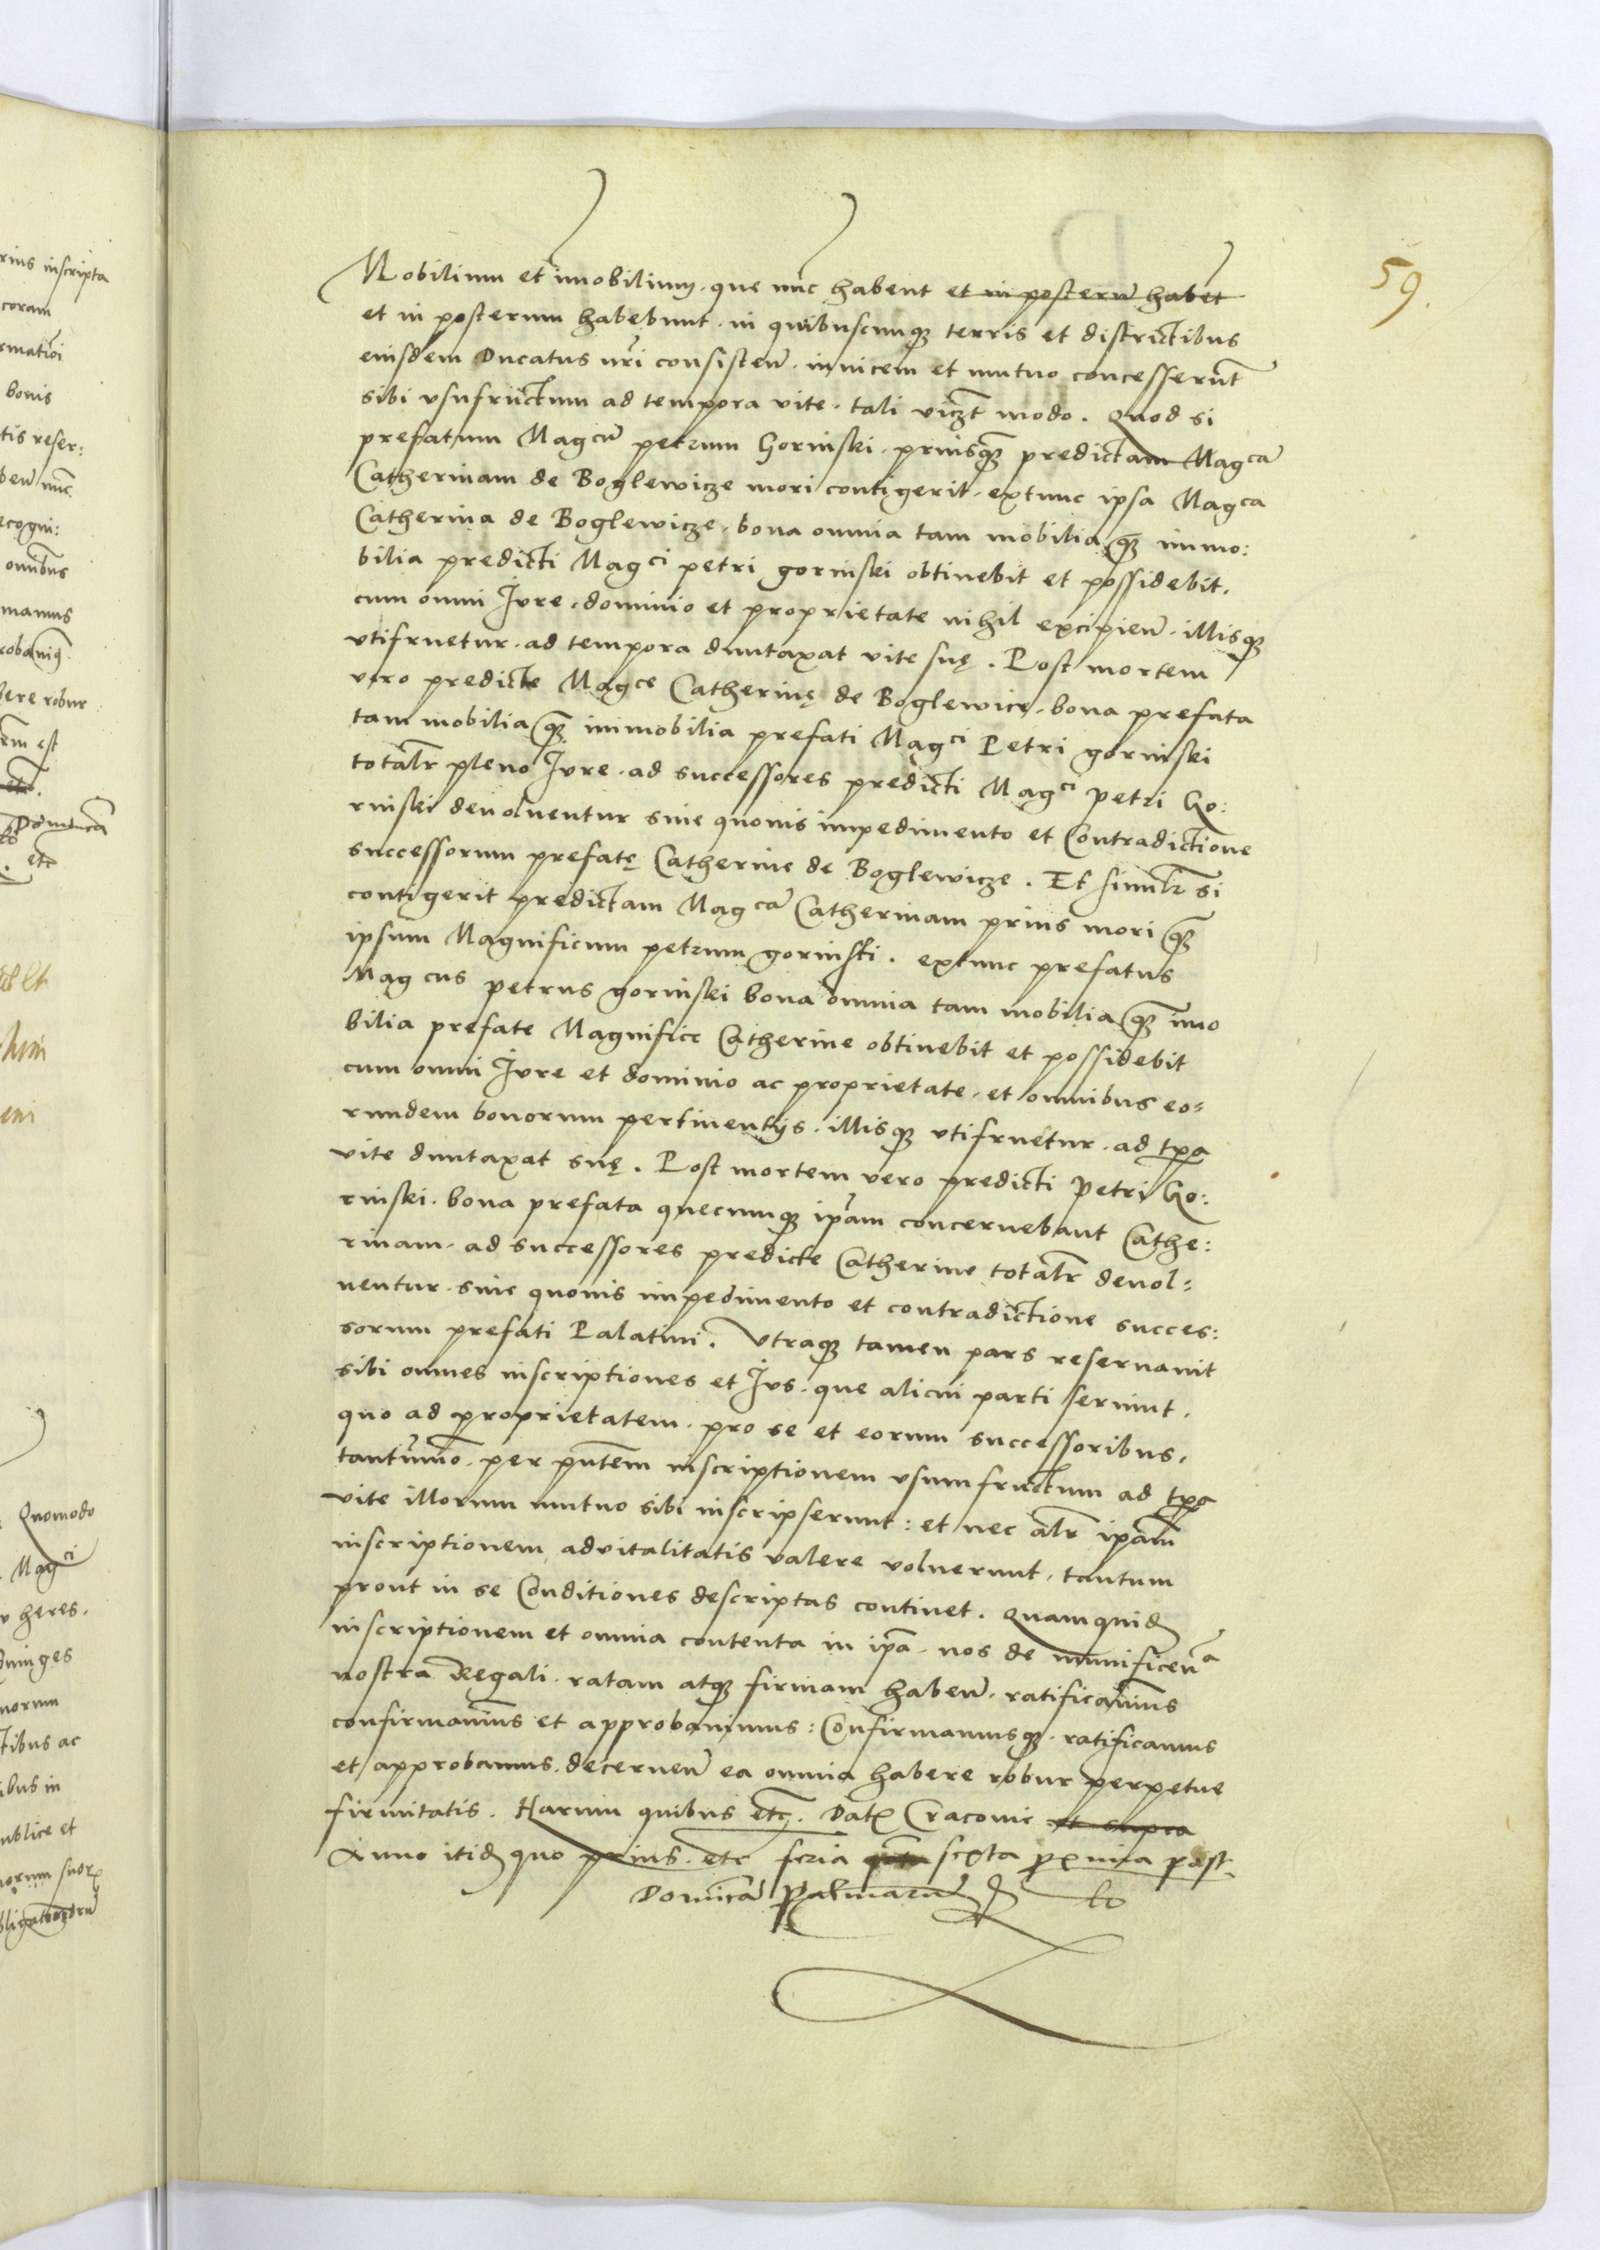 59.
Mobilium et imobilium. que nūc habent et in posterū habēt
et in posterum habebunt. in quibuscunqꝫ terris et districtibus
eiusdem Ducatus nr̄i consisteñ. inuicem et mutuo concesserūt
sibi vsufructum ad tempora vite. tali vicꝫt modo. Quod si
prefatum Magcū petrum Gorinski. priusqꝫ predictam Magcā
Catherinam de Boglewicze mori contigerit. extunc ipsa Magca
Catherina de Boglewicze. bona omnia tam mobilia qꝫ immo:
bilia predicti Magci petri gorinski obtinebit et possidebit.
cum omni Jure. dominio et proprietate nihil excipieñ. illisqꝫ
vtifruetur. ad tempora duntaxat vite suę. Post mortem
vero predicte Magce Catherinę de Boglewice. bona prefata
tam mobilia qꝫ inmobilia prefati Magci Petri gorinski
totalr̄ pleno Jure. ad successores predicti Magci Petri Go:
rinski deuoluentur sine quouis impedimento et Contradictione
successorum prefatę Catherine de Boglewicze. Et similr̄ si
contigerit predictam Magcā Catherinam prius mori qꝫ
ipsum Magnificum petrum gorinski. extunc prefatus
Magcus petrus gorinski bona omnia tam mobilia qꝫ im̄o
bilia prefate Magnifice Catherine obtinebit et possidebit
cum omni Jure et dominio ac proprietate. et omnibus eo=
rundem bonorum pertinentijs. illisqꝫ vtifruetur. ad tp̄a
vite duntaxat suę. Post mortem vero predicti Petri Go:
rinski. bona prefata quecunqꝫ ip̄am concernebant Cathe:
rinam. ad successores predicte Catherine totalr̄ deuol=
uentur. sine quouis impedimento et contradictione succes:
sorum prefati Palatini. Vtraqꝫ tamen pars reseruauit
sibi omnes inscriptiones et Jus. que alicui parti seruiunt.
quo ad proprietatem. pro se et eorum successoribus.
tantūmo. per pn̄tem inscriptionem vsumfructum ad tp̄a
vite illorum mutuo sibi inscripserunt: et nec alr̄ ipam̄
inscriptionem aduitalitatis valere voluerunt. tantum
prout in se Conditiones descriptas continet. Quamquid
inscriptionem et omnia contenta in ip̄a. nos de munificen̄a
nostra Regali. ratam atqꝫ firmam habeñ. ratificauim̄us
confirmauim̄us et approbauimus: Confirmamusqꝫ. ratificamus
et approbamus. decerneñ ea omnia habere robur perpetue
firmitatis. Harum quibus etcꝫ. Datꝫ Cracouie et supra
Anno itid quo prius. etc feria sexta proxima post
Dominicā Palmarū